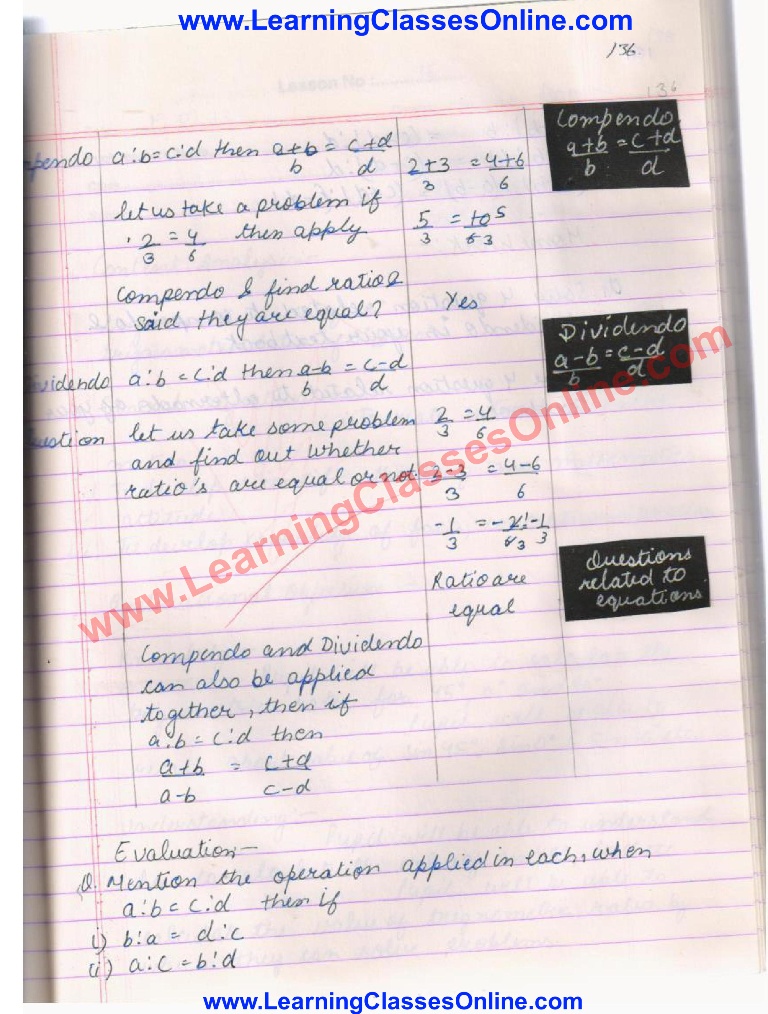 www.LearningClassesOnline.com
136
136
Lesson No
pendo a:b=c:d then a+b/b = c+d/d
let us take a problem if
2/3 = 4/6 then apply
Compendo & find ratio
said they are equal?
2+3/3 = 4+6/6
5/3 = 10/6 5/3
Yes
Compendo
a+b/b = c+d/d
Dividendo
a-b/b = c-d/d
videndo a:b = c:d then a-b/b = c-d/d
uestion let us take some problem
and find out whether
ratio's are equal or not.
2/3 = 4/6
2-3/3 = 4-6/6
-1/3 = -2/6 -1/3
Ratio are
equal
Questions
related to
equations
Compendo and Dividendo
can also be applied
together, then if
a:b = c:d then
a+b/a-b = c+d/c-d
www.LearningClassesOnline.com
Evaluation-
Q. Mention the operation applied in each, when
a:b = c:d then if
i) b:a = d:c
ii) a:c = b:d
www.LearningClassesOnline.com